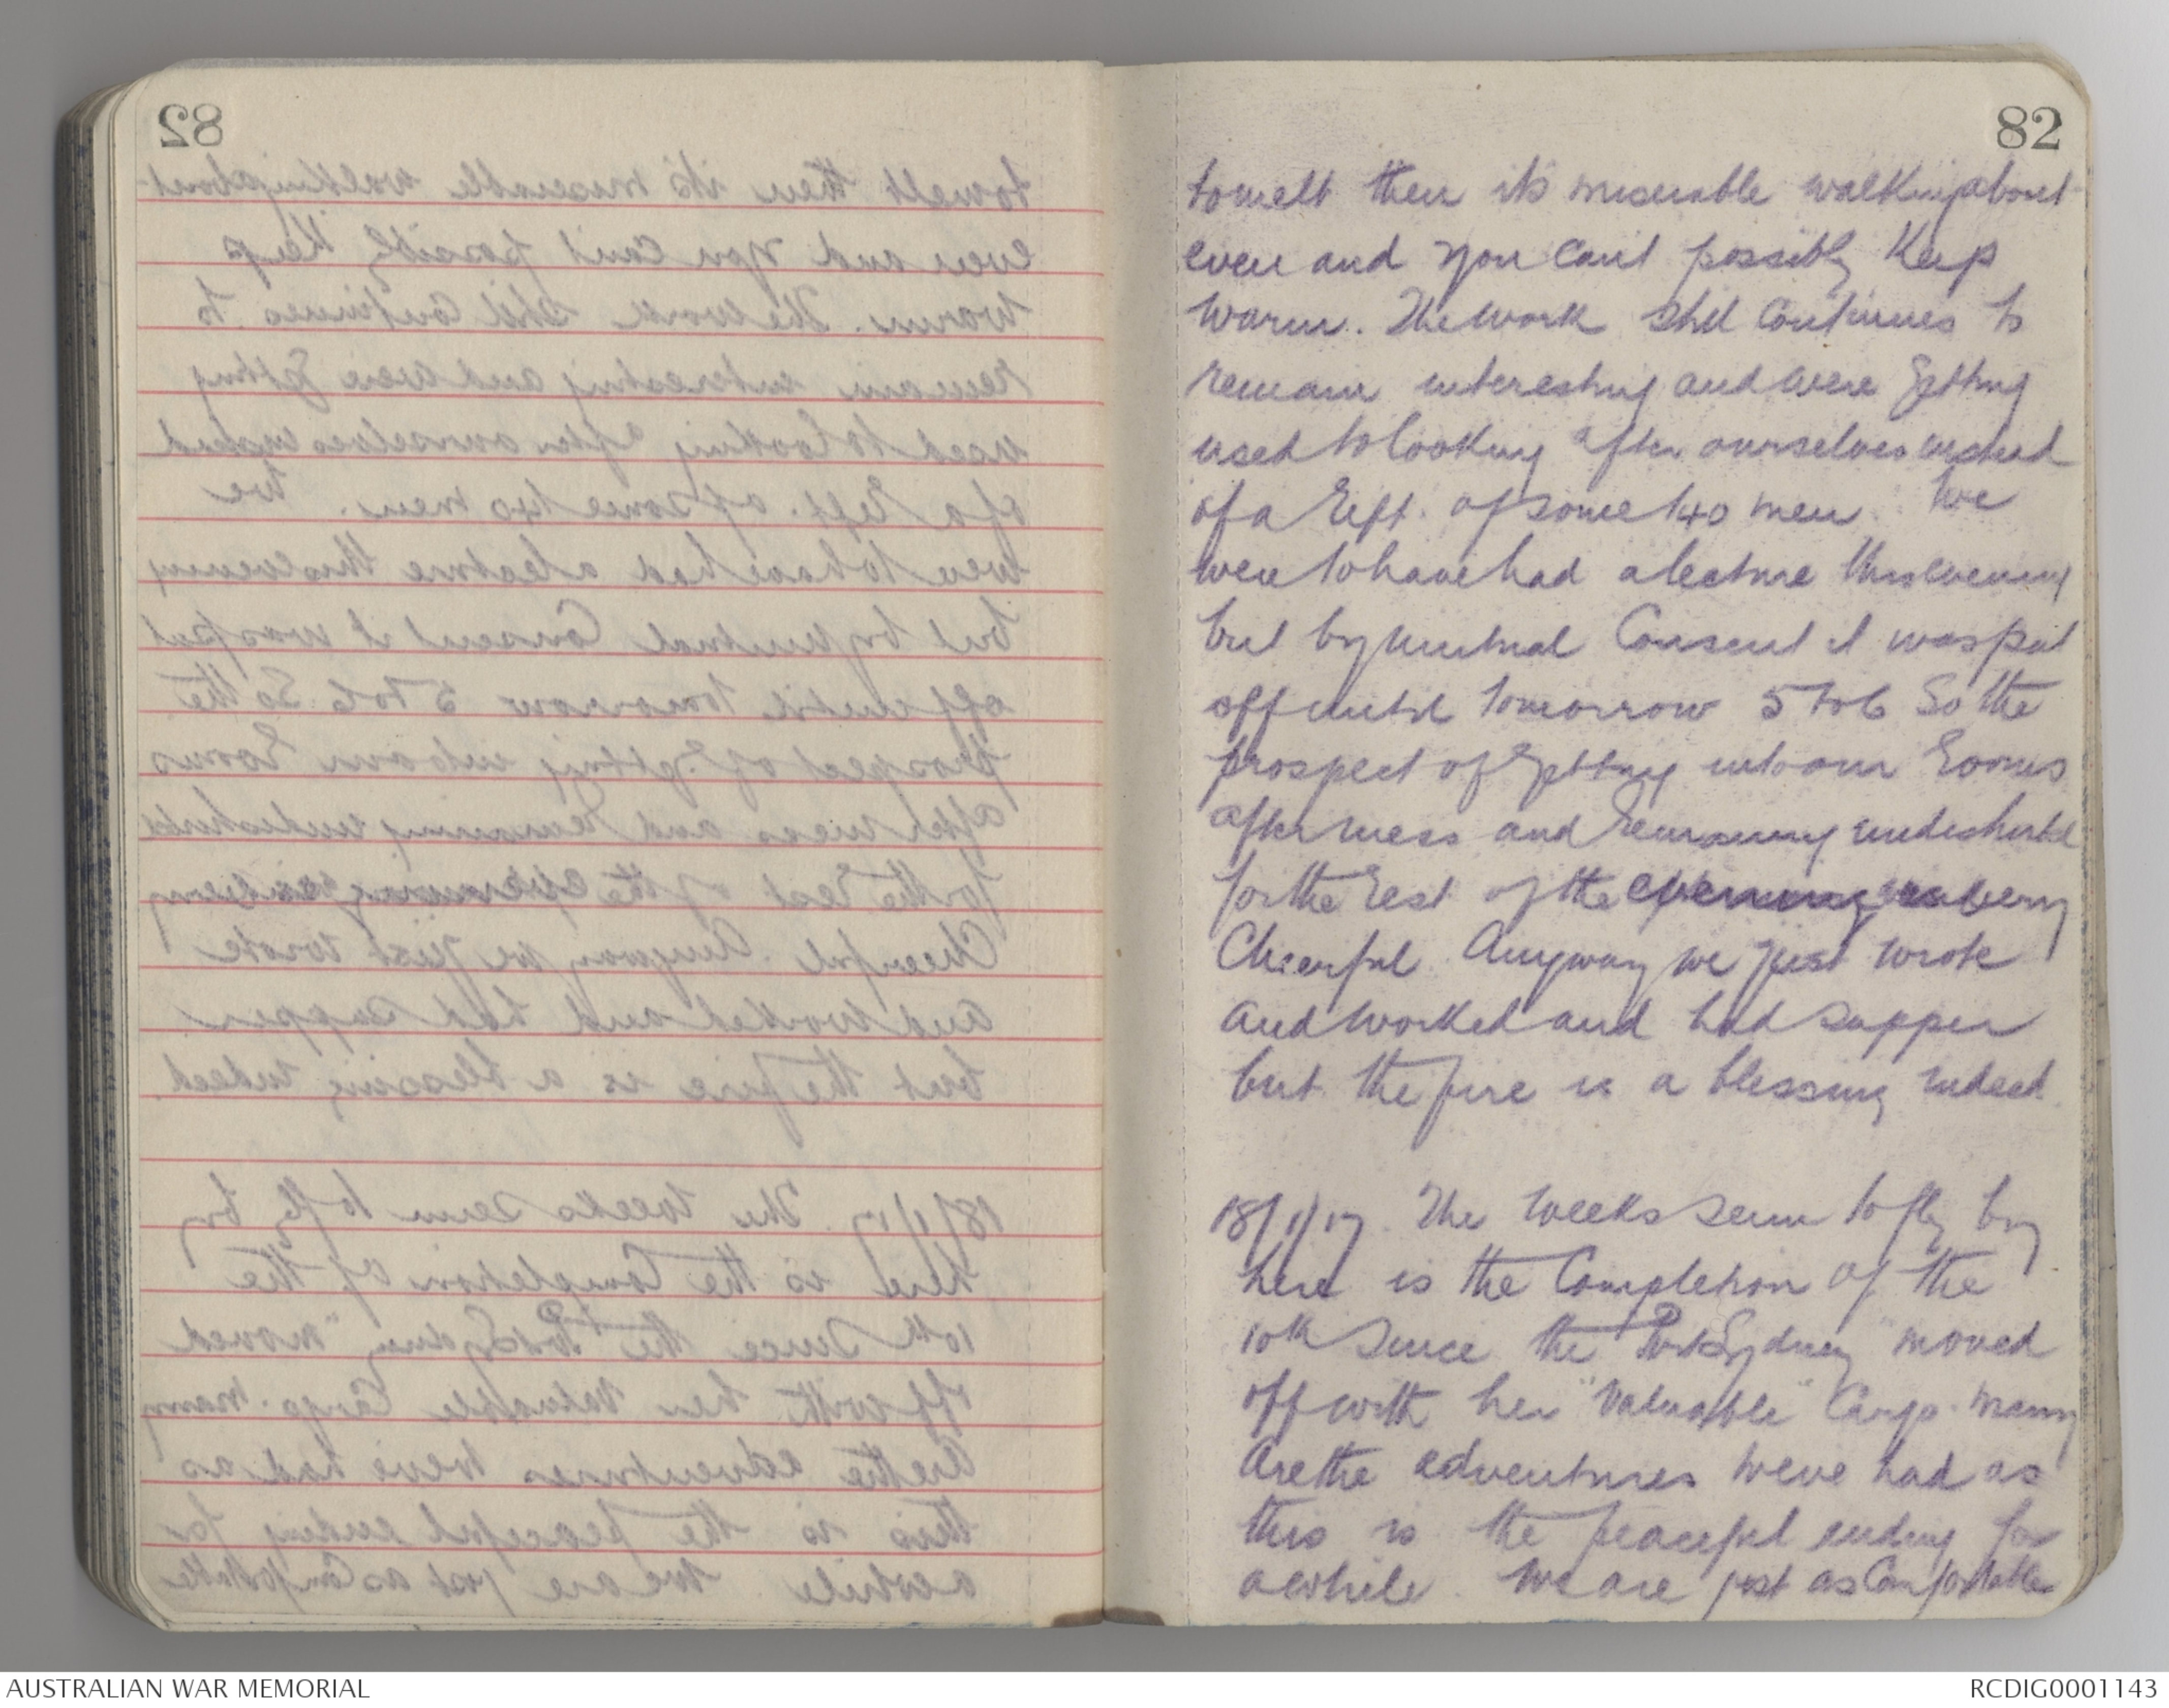 82
to melt then its miserable walking about
even and you cant possibly keep
warm. The work still continues to
remain interesting and were getting
used to looking after ourselves instead
of a Reft. of some 140 men. We
were to have had a lecture this evening
but by mutual Consent it was put
off until tomorrow 5 to 6 So the
prospect of getting into our Rooms
after mess and remaining undisturbed
for the rest of the evening was very
Cheerful. Anyway we just wrote
and worked and had supper
but the fire is a blessing indeed.
18/1/17. The weeks seem to fly by
here is the Completion of the
10th since the "Port Sydney" moved
off with her "Valuable" Cargo. Many
are the adventures weve had as
this is the peaceful ending for
awhile. We are just as Comfortable
AUSTRALIAN WAR MEMORIAL
RCDIG0001143